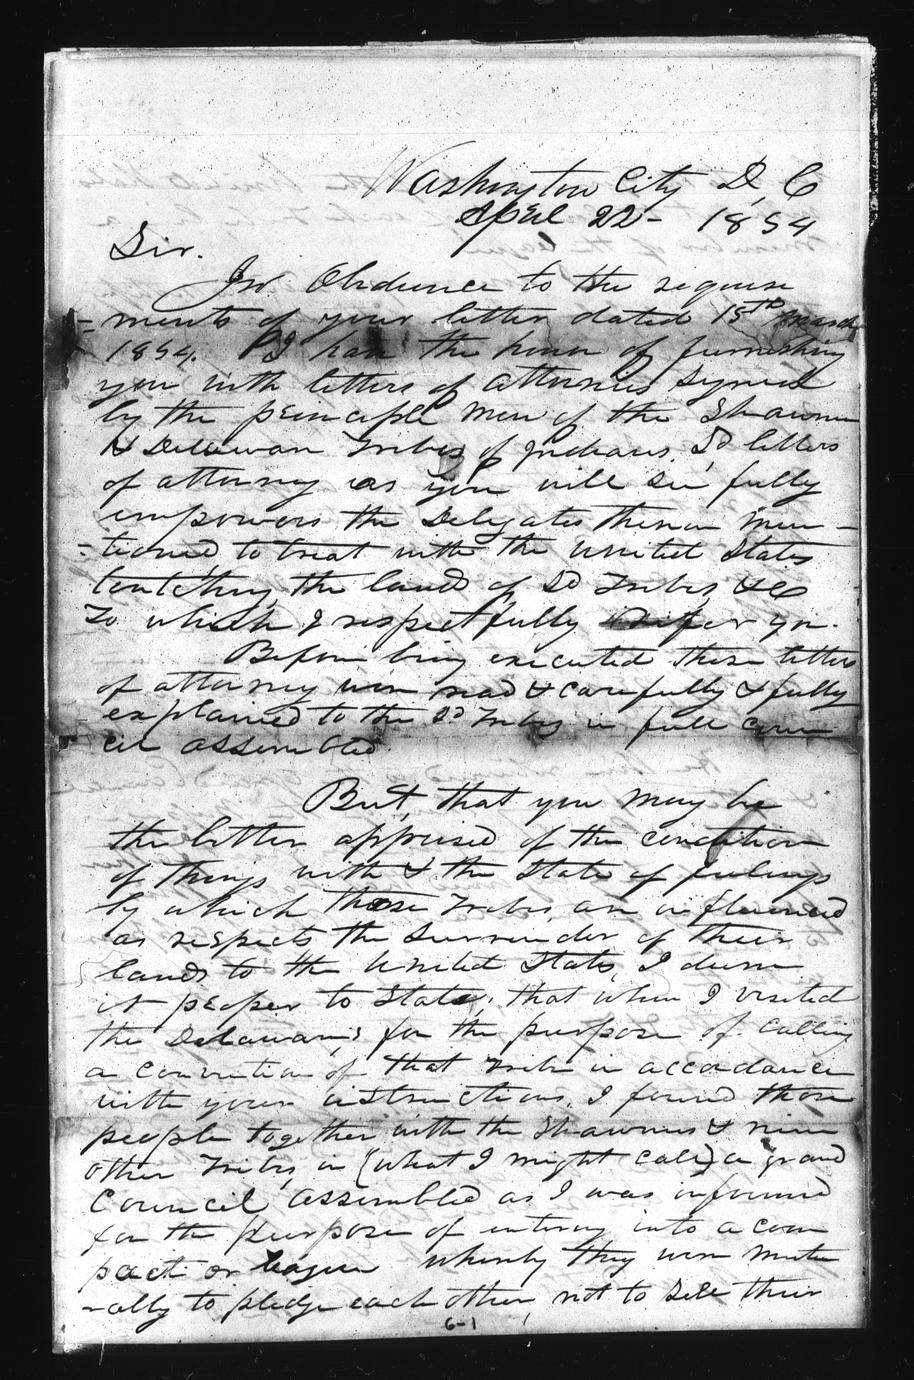 Washington City D, C
April 22 - 1854
Sir.
In Obedience to the require
=ments of your letter dated 15th March
1854. I have the honor of furnishing
you with letters of attornies signed
by the principle men of the Shawnee
& Dellawar Tribes of Indians, Sd letters
of attorney as you will see fully
empowers the Delegates therein men-
=tioned to treat with the United States
toutching the lands of Sd Tribes, &c
To which I respectfully refer you.
Before being executed these letters
of attorney were read & carefully & fully
explained to the Sd Tribes in full coun
cil assembled.
But, that you may be
the better apprised of the condition
of things with & the State of feelings
by which these Tribes, are influenced
as respects the Surrender of their
lands to the United States, I deem
it proper to State, that when I visited
the Delawares for the purpose of calling
a convention of that Tribe in accordance
with your instructions, I found those
people together with the Shawnees & nine
other Tribes in (what I might call) a grand
Council, assembled as I was informed
for the purpose of entering into a com
pact or league whereby they were mutu
-ally to pledge each other, not to sell their
6-1